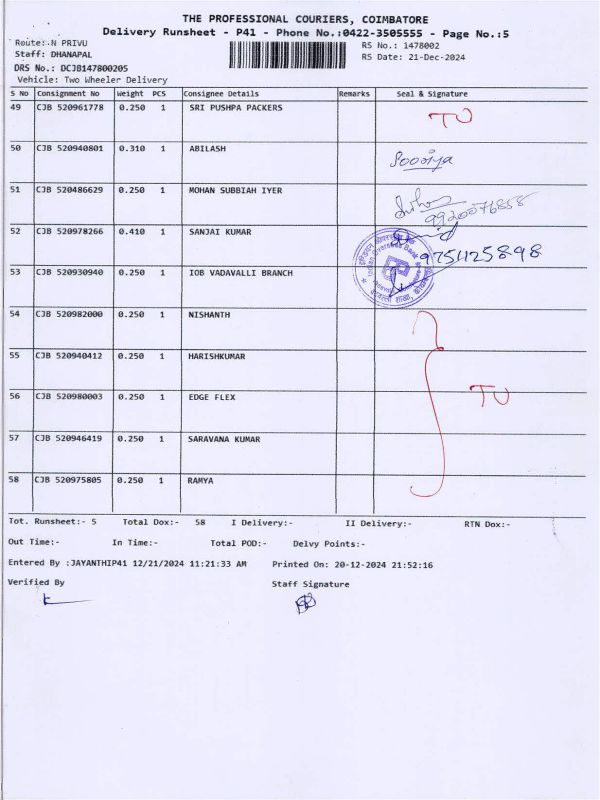 THE PROFESSIONAL COURIERS, COIMBATORE
Delivery Runsheet - P41 - Phone No.:0422-3505555 - Page No.:5
Route:-N PRIVU
Staff: DHANAPAL
DRS No.: DCJB147800205
Vehicle: Two Wheeler Delivery
RS No.: 1478002
RS Date: 21-Dec-2024
S No Consignment No Weight PCS Consignee Details Remarks Seal & Signature
49 CJB 520961778 0.250 1 SRI PUSHPA PACKERS TU
50 CJB 520940801 0.310 1 ABILASH Sooniya
51 CJB 520486629 0.250 1 MOHAN SUBBIAH IYER
9920076858
52 CJB 520978266 0.410 1 SANJAI KUMAR
9751125898
53 CJB 520930940 0.250 1 IOB VADAVALLI BRANCH
Indian Overseas Bank
54 CJB 520982000 0.250 1 NISHANTH
55 CJB 520940412 0.250 1 HARISHKUMAR
56 CJB 520980003 0.250 1 EDGE FLEX TU
57 CJB 520946419 0.250 1 SARAVANA KUMAR
58 CJB 520975805 0.250 1 RAMYA
Tot. Runsheet:- 5 Total Dox:- 58 I Delivery:- II Delivery:- RTN Dox:-
Out Time:- In Time:- Total POD:- Delvy Points:-
Entered By :JAYANTHIP41 12/21/2024 11:21:33 AM Printed On: 20-12-2024 21:52:16
Verified By Staff Signature